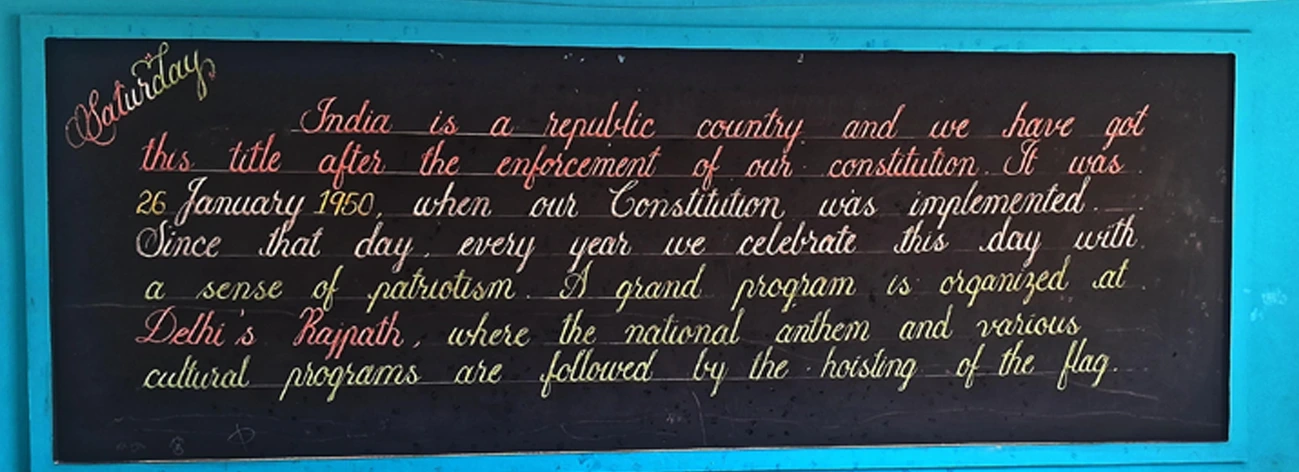 Saturday
India is a republic country and we have got
this title after the enforcement of our constitution. It was
26 January 1950, when our Constitution was implemented.
Since that day, every year we celebrate this day with
a sense of patriotism. A grand program is organized at
Delhi's Rajpath, where the national anthem and various
cultural programs are followed by the hoisting of the flag.